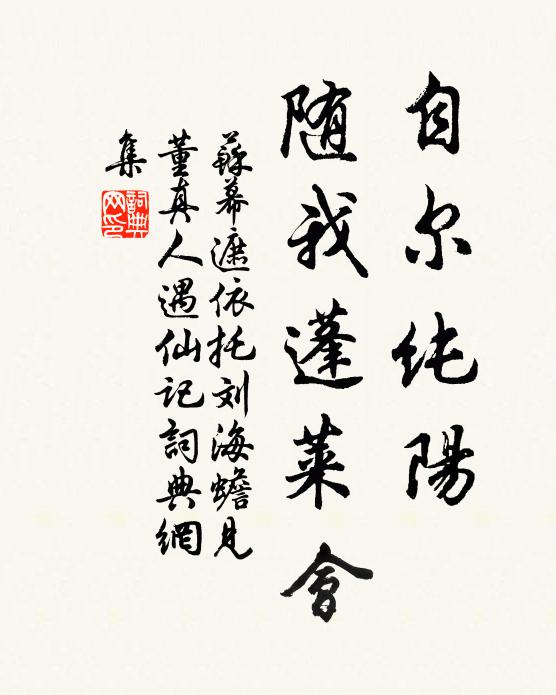 自尔纯陽
随我蓬莱會
蘇幕遮依托刘海蟾見
董真人遇仙记詞典網
集
詞典网印